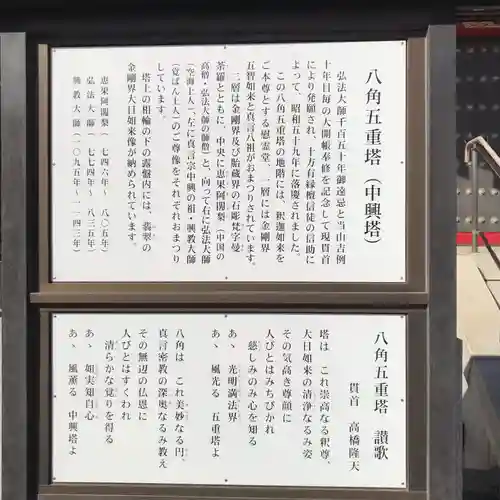 八角五重塔（中興塔）
弘法大師千百五十年御遠忌と当山吉例
十年目毎の大開帳奉修を記念して現貫首
により発願され、十方有縁檀信徒の信助に
よって、昭和五十九年に落慶されました。
この八角五重塔の地階には、釈迦如来を
ご本尊とする慰霊堂、一層には金剛界
五智如来と真言八祖がおまつりされています。
二層は金剛界及び胎蔵界の石彫梵字曼
荼羅とともに、中央に恵果阿闍梨（中国の
高僧・弘法大師の師僧）と、向って右に弘法大師
（空海上人）、左に真言宗中興の祖・興教大師
（覚ばん上人）のご尊像をそれぞれおまつり
しています。
塔上の相輪の下の露盤内には、翡翠の
金剛界大日如来像が納められています。
恵果阿闍梨（七四六年～八〇五年）
弘法大師（七七四年～八三五年）
興教大師（一〇九五年～一一四三年）
八角五重塔 讃歌
貫首 高橋隆天
塔は これ崇高なる釈尊、
大日如来の清浄なるみ姿
その気高き尊顔に
人びとはみちびかれ
慈しみのみ心を知る
あゝ 光明満法界
あゝ 風光る 五重塔よ
八角は これ美妙なる円、
真言密教の深奥なるみ教え
その無辺の仏恩に
人びとはすくわれ
清らかな覚りを得る
あゝ 如実知自心
あゝ 風薫る 中興塔よ